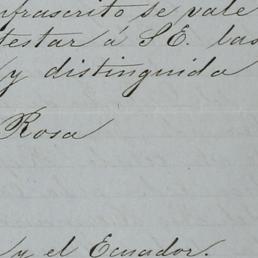 nfrascrito se vale
testar á S.E. las
y distinguida
Rosa
y el Ecuador.